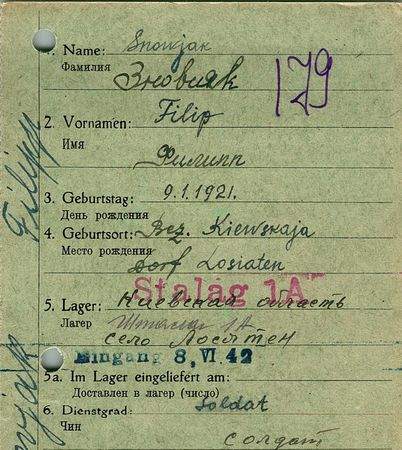 1. Name: Snowjak
Фамилия Зновияк
179
2. Vornamen: Filip
Имя
Филипп
3. Geburtstag: 9.1.1921.
День рождения
4. Geburtsort: Bez. Kiewskaja
Место рождения
Dorf Losiaten
Stalag 1A
5. Lager: Киевская область
Лагер Шталаг 1А
село Лосятен
Eingang 8, VI 42
5a. Im Lager eingeliefert am:
Доставлен в лагер (число)
6. Dienstgrad: Soldat
Чин
солдат
Filipp